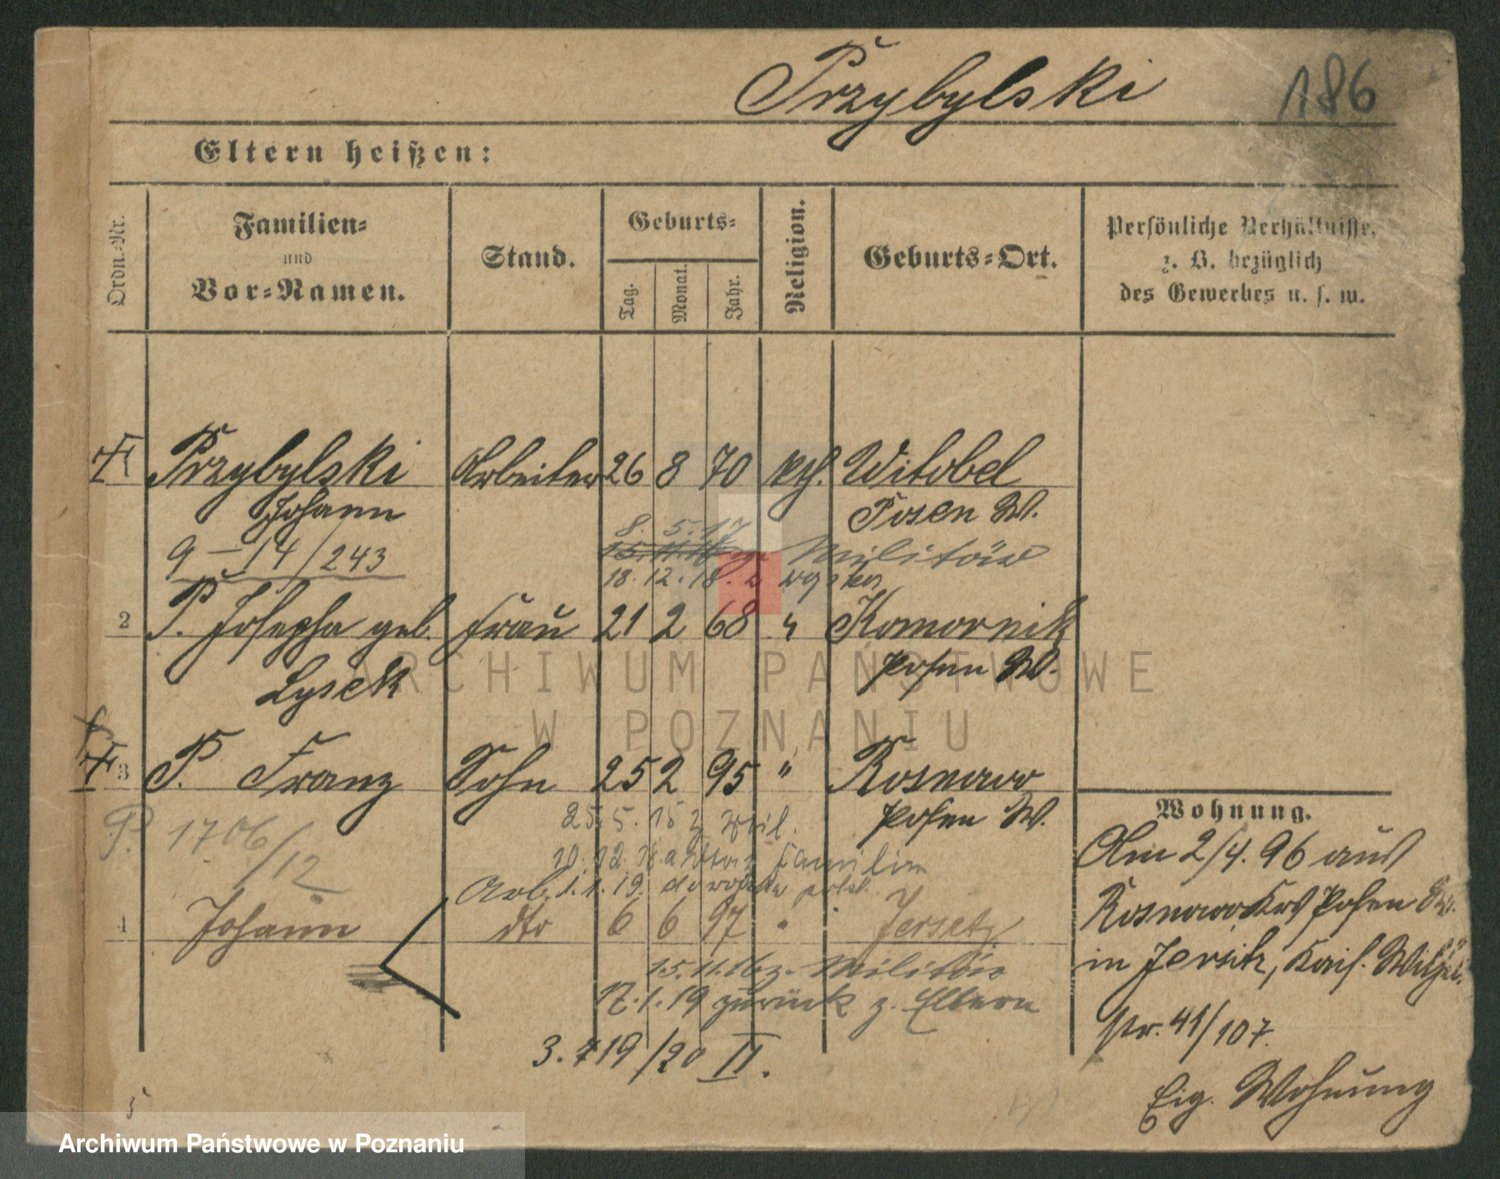 Przybylski 186
Eltern heißen:
Ordn.-Nr. Familien- und Vor-Namen. Stand. Geburts- Tag. Monat. Jahr. Religion. Geburts-Ort. Persönliche Verhältnisse, z. B. bezüglich des Gewerbes u. s. w.
1 Przybylski Arbeiter 26 8 70 kth. Witobel
Johann Posen W.
8. 5. 17
9 – 14/243 Militär
18. 12. 18. z
2 P. Josepha geb. Frau 21 2 68 " Komornik
Lysek Posen W.
3 P. Franz Sohn 25 2 95 " Rosnowo
Posen W.
P. 1706/12 25. 5. 15 z
10. 12. 18 Familie
Arb. 1. 1. 19.
4 Johann dto 6 6 97 " Jersitz
15. 11. 16 z. Militär
12. 1. 19 zurück z. Eltern
3. 719/20 II.
5
Wohnung.
Am 2/4. 96 aus
Rosnowo Krs Posen W.
in Jersitz, Kais. Wilhel.
str. 41/107.
Eig. Wohnung
ARCHIWUM PAŃSTWOWE
W POZNANIU
Archiwum Państwowe w Poznaniu